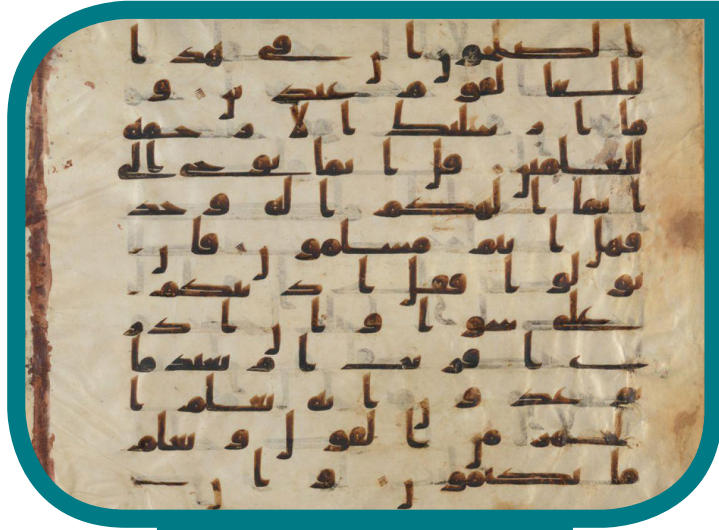 الصلحون ان في هذا
لبلغا لقوم عبدين و
ما ارسلنك الا رحمة
للعلمين قل انما يوحى الي
انما الهكم اله وحد
فهل انتم مسلمون فان
تولوا فقل اذنتكم
على سوا وان ادر
ي اقريب ام بعيد ما
توعدون انه يعلم ا
لجهر من القول ويعلم
ما تكتمون وان